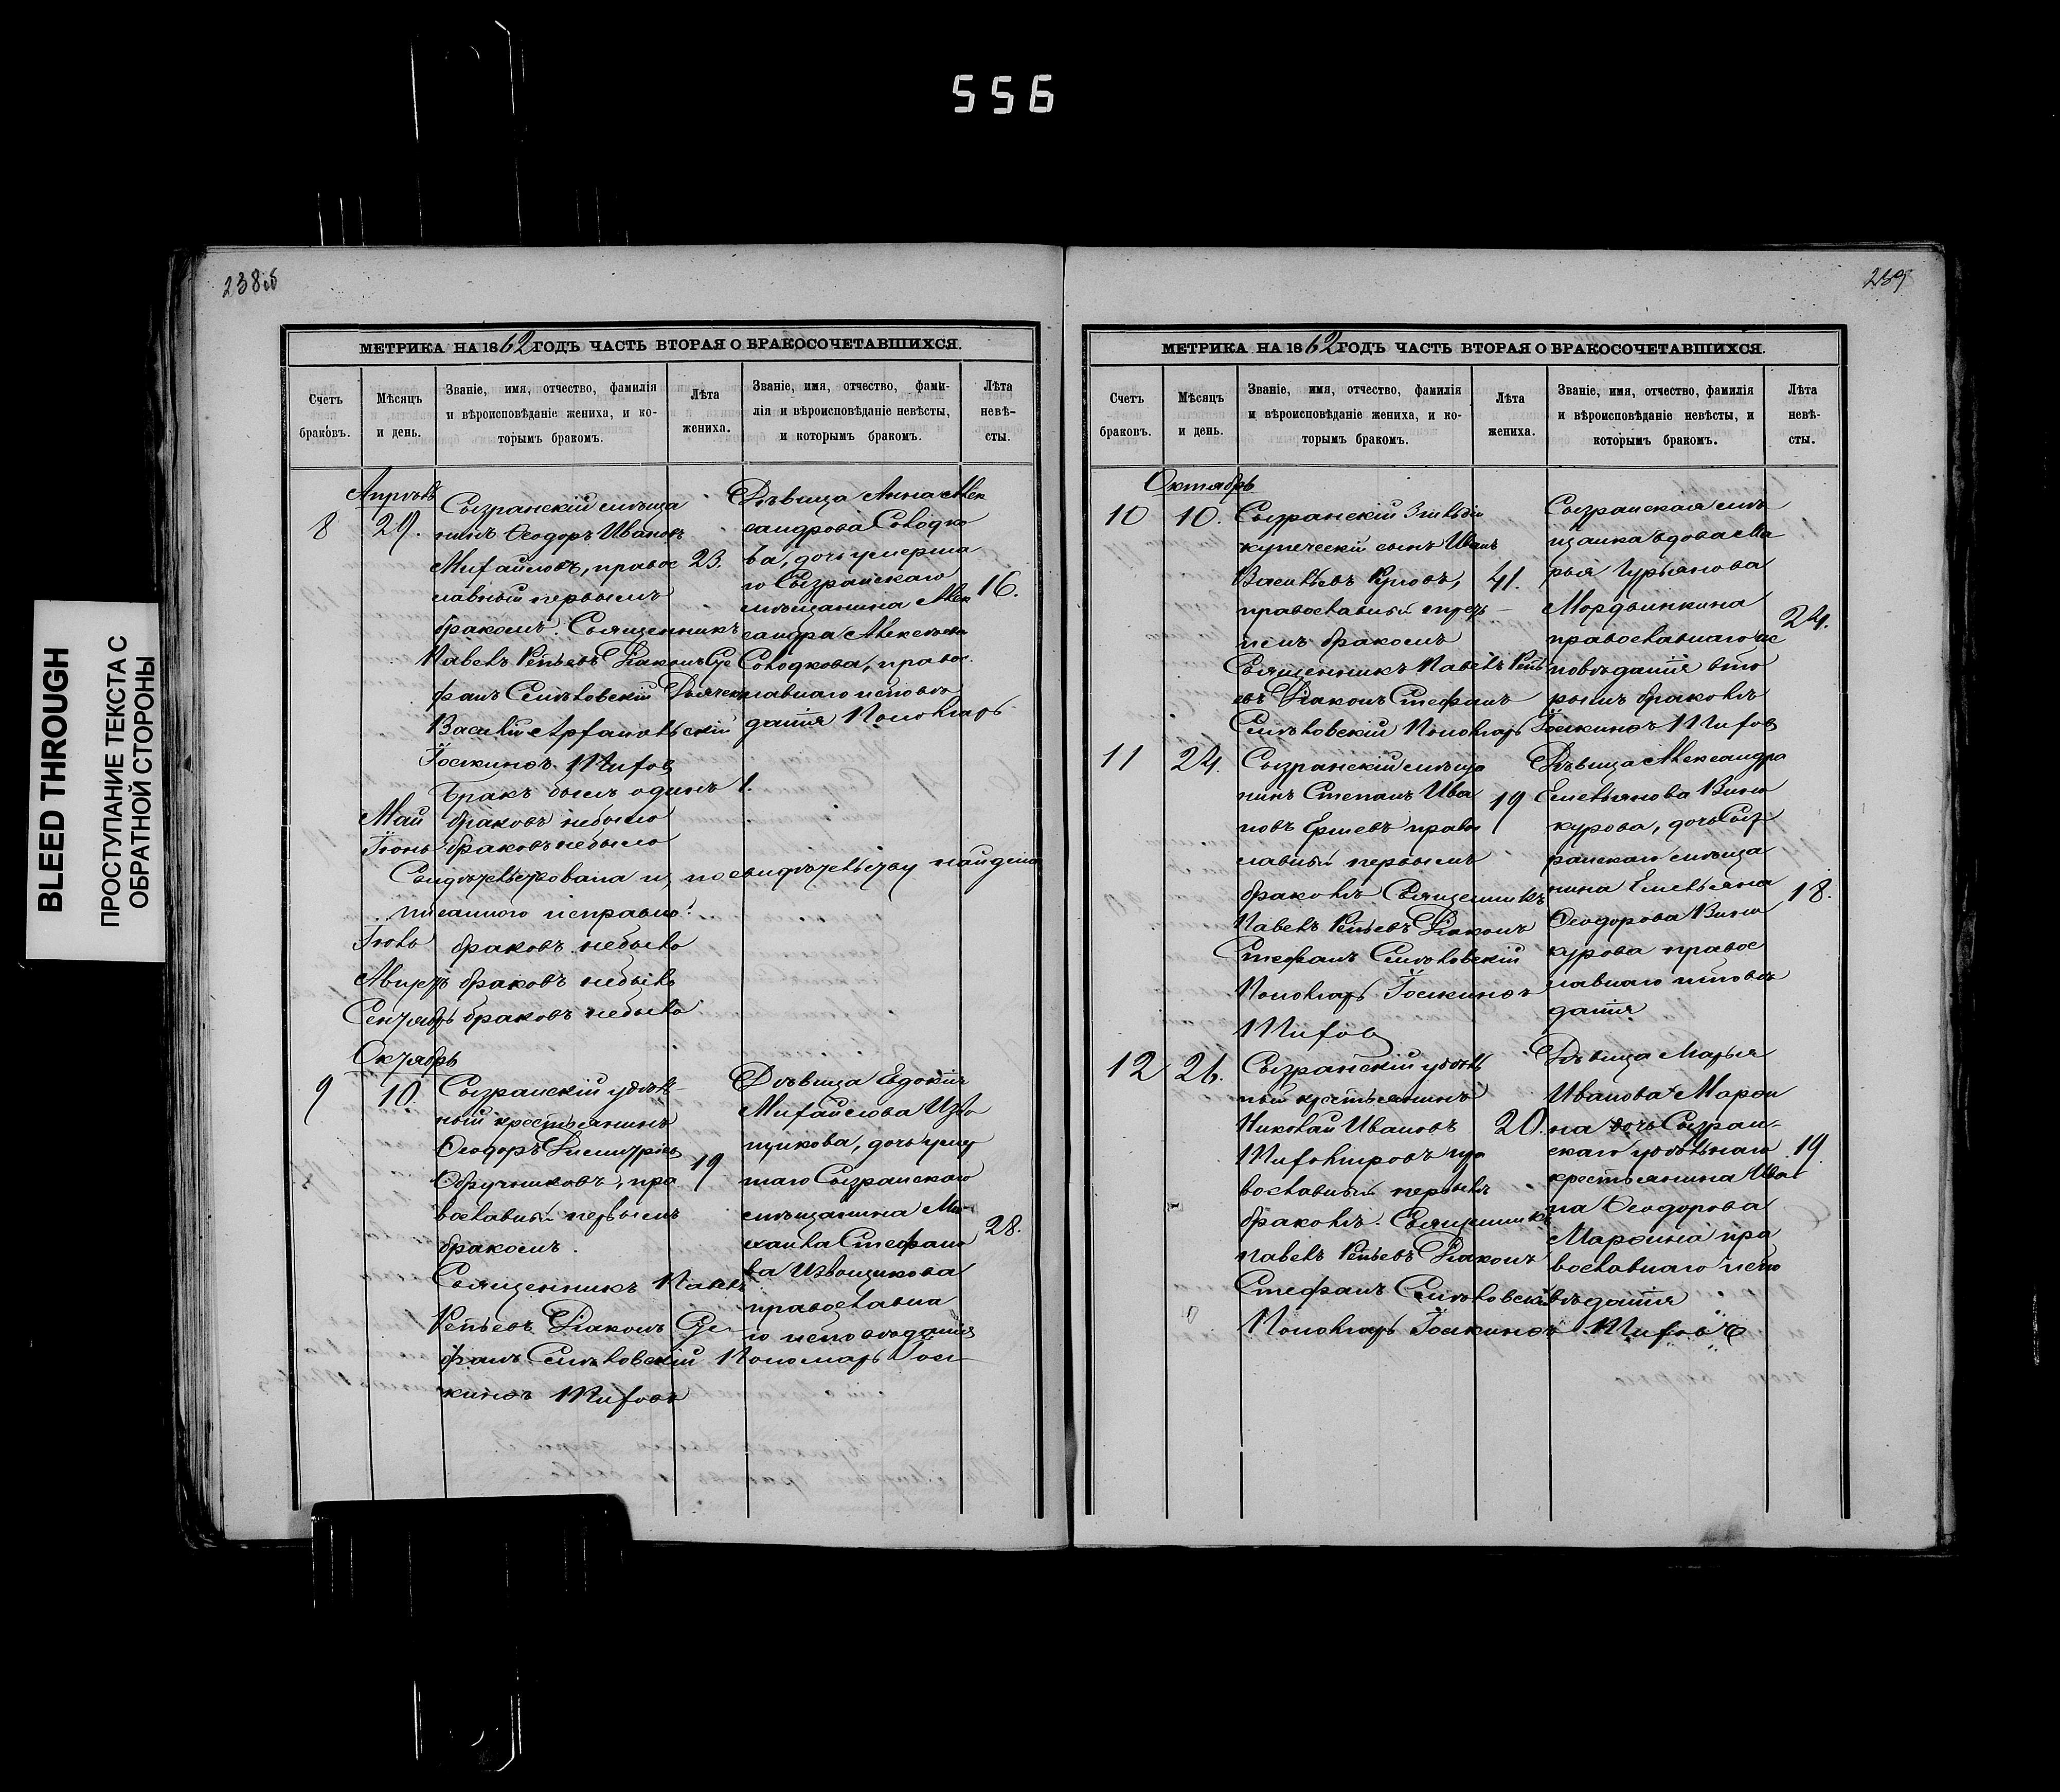 556
BLEED THROUGH
ПРОСТУПАНИЕ ТЕКСТА С
ОБРАТНОЙ СТОРОНЫ
238об
МЕТРИКА НА 1862 ГОДЪ ЧАСТЬ ВТОРАЯ О БРАКОСОЧЕТАВШИХСЯ.
Счетъ
браковъ.
Мѣсяцъ
и день.
Званіе, имя, отчество, фамилія
и вѣроисповѣданіе жениха, и ко-
торымъ бракомъ.
Лѣта
жениха.
Званіе, имя, отчество, фами-
лія и вѣроисповѣданіе невѣсты,
и которымъ бракомъ.
Лѣта
невѣ-
сты.
Апрѣль
8
29.
Сызранскій мѣща
нинъ Ѳеодоръ Ивановъ
Михайловъ, правос
лавный первымъ
бракомъ. Священникъ
Павелъ Діаконъ Сте
фанъ Дьячекъ
Василій
Браκъ былъ одинъ 1.
23.
Дѣвица Анна Алек
сандрова Солодко
ва, дочь умерша
го Сызранскаго
мѣщанина Алек
сандра Алексѣева
Солодкова, правос
лавнаго исповѣ
данія Пономарь
16.
Май браковъ небыло
Іюнь браковъ небыло
Свидѣтельствована и, по свидѣтельству найдена
писанною исправно.
Іюль браковъ небыло
Августъ браковъ небыло
Сентябрь браковъ небыло
Октябрь
9
10.
Сызранскій уѣзд
ный крестьянинъ
Ѳеодоръ Димитріев
Обручниковъ, пра
вославный первымъ
бракомъ.
Священникъ Павелъ
Діаконъ Сте
фанъ Пономарь
19
Дѣвица Евдокія
Михайлова Изво
щикова, дочь умер
шаго Сызранскаго
мѣщанина Ми-
хаила Стефано
ва Извощикова
православна
го исповѣданія
28.
239
МЕТРИКА НА 1862 ГОДЪ ЧАСТЬ ВТОРАЯ О БРАКОСОЧЕТАВШИХСЯ.
Счетъ
браковъ.
Мѣсяцъ
и день.
Званіе, имя, отчество, фамилія
и вѣроисповѣданіе жениха, и ко-
торымъ бракомъ.
Лѣта
жениха.
Званіе, имя, отчество, фамилія
и вѣроисповѣданіе невѣсты, и
которымъ бракомъ.
Лѣта
невѣ-
сты.
Октябрь
10
10.
Сызранскій 3 гильдіи
купеческій сынъ Иванъ
Васильевъ
православный треть
имъ бракомъ
Священникъ Павелъ
Діаконъ Стефанъ
Пономарь
41.
Сызранская мѣ
щанка вдова Ма
рья Гурьянова
Мордвинкина
православнаго ис
повѣданія вто
рымъ бракомъ
24.
11
24.
Сызранскій мѣща
нинъ Степанъ Ива
новъ Ершевъ право
славный первымъ
бракомъ Священникъ
Павелъ Діаконъ
Стефанъ
Пономарь
19
Дѣвица Александра
Емельянова Вино
курова, дочь Сыз
ранскаго мѣща
нина Емельяна
Ѳеодорова Вино
курова правос
лавнаго исповѣ
данія
18.
12
26.
Сызранскій уѣзд
ный крестьянинъ
Николай Ивановъ
пра
вославный первымъ
бракомъ. Священникъ
Павелъ Діаконъ
Стефанъ
Пономарь
20.
Дѣвица Марья
Иванова Мароси
на дочь Сызран-
скаго уѣзднаго
крестьянина Ива
на Ѳеодорова
пра
вославнаго испо
вѣданія
19.